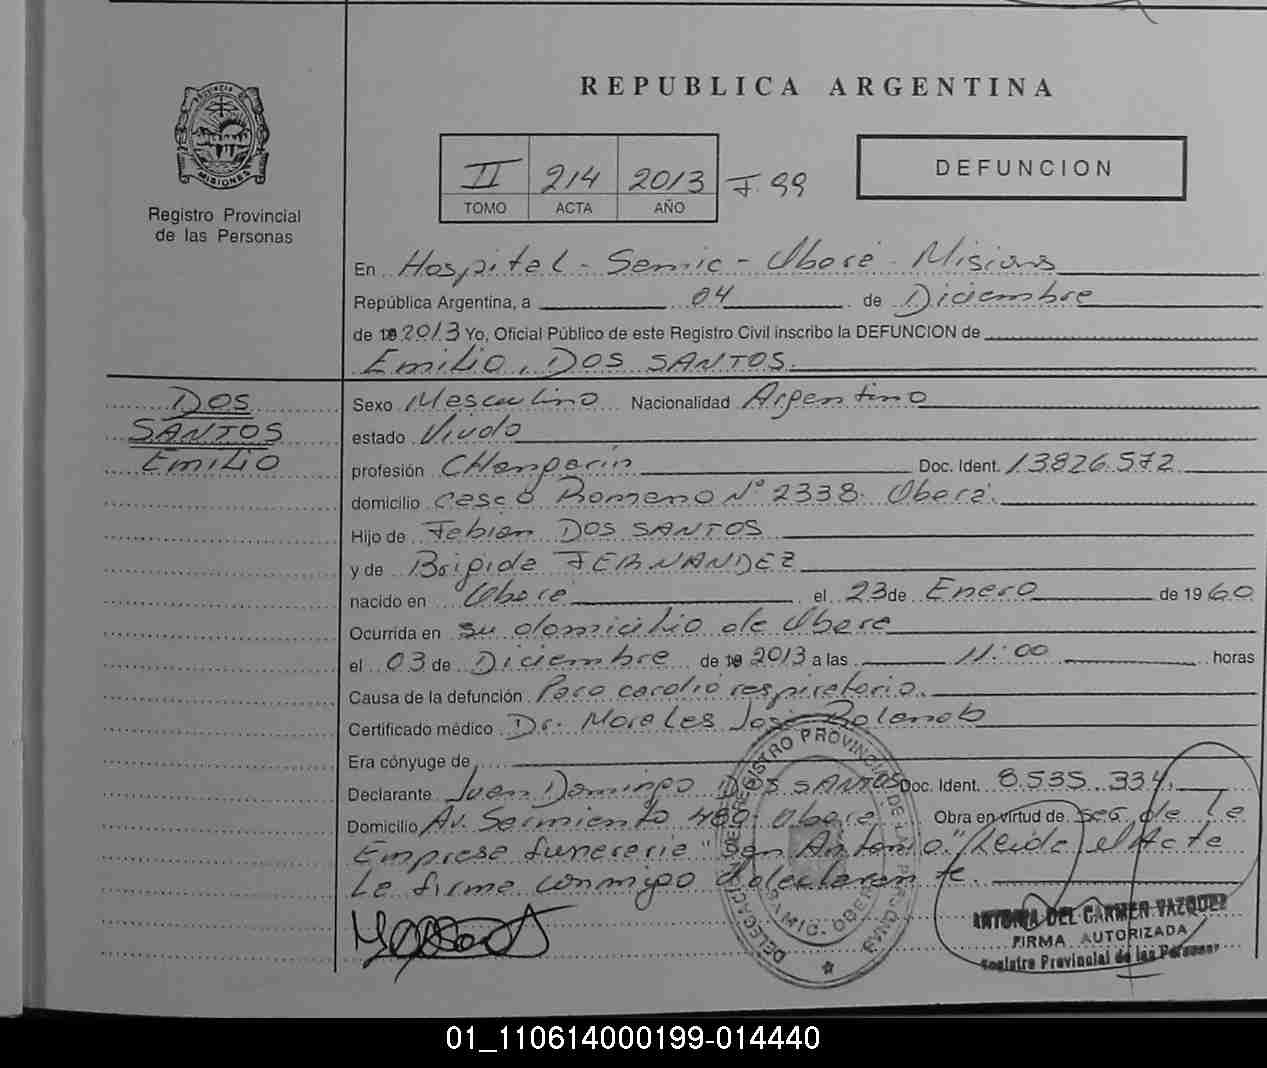 REPUBLICA ARGENTINA
PROVINCIA DE MISIONES
Registro Provincial
de las Personas
II 214 2013 F. 99
TOMO ACTA AÑO
DEFUNCION
En Hospital - Samic - Oberá - Misiones
República Argentina, a 04 de Diciembre
de 2013 Yo, Oficial Público de este Registro Civil inscribo la DEFUNCION de
Emilio, DOS SANTOS.
DOS
SANTOS
Emilio
Sexo Masculino Nacionalidad Argentino
estado Viudo
profesión CHangarín Doc. Ident. 13826.572
domicilio casco Romano N° 2338. Oberá.
Hijo de Fabian DOS SANTOS
y de Brigida FERNANDEZ
nacido en Obera el 23 de Enero de 1960
Ocurrida en su domicilio de Obera
el 03 de Diciembre de 2013 a las 11:00 horas
Causa de la defunción Paro cardio respiratorio.
Certificado médico Dr. Morales José Rolando
Era cónyuge de
Declarante Juan Domingo DOS SANTOS Doc. Ident. 8.535.334.
Domicilio Av. Sarmiento 489. Obera Obra en virtud de ser de la
Empresa funeraria "San Antonio." Leida el Acta
La firma conmigo el declarante.
DELEGACION DEL REGISTRO PROVINCIAL DE LAS PERSONAS
SAMIC. OBERA
ANTONIA DEL CARMEN VAZQUEZ
FIRMA AUTORIZADA
Registro Provincial de las Personas
01_110614000199-014440